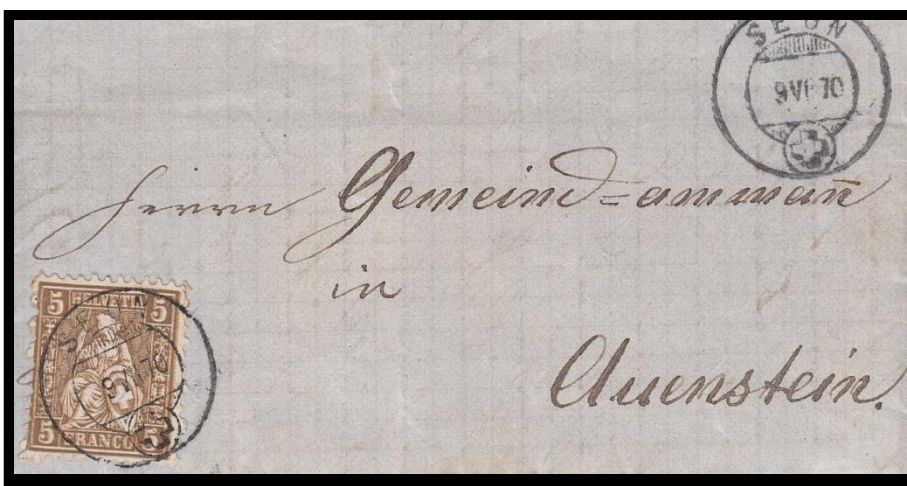 SEON
9 VI 70
Herrn Gemeind=amman̄
in
Auenstein.
5 HELVETIA 5
9 VI 70
5 FRANCO 5